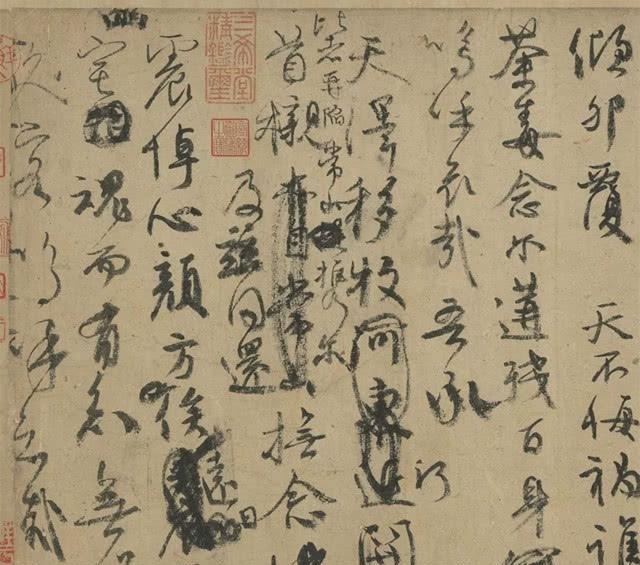 傾卵覆 天不悔禍誰
荼毒念爾遘殘百身
嗚呼哀哉吾承
天澤移牧河東近
比者再陷常山攜爾
首櫬亦自常山撫念
及茲同還
震悼心顏方俟遠日
宅魂而有知無
久客嗚呼哀哉
三希堂精鑑璽